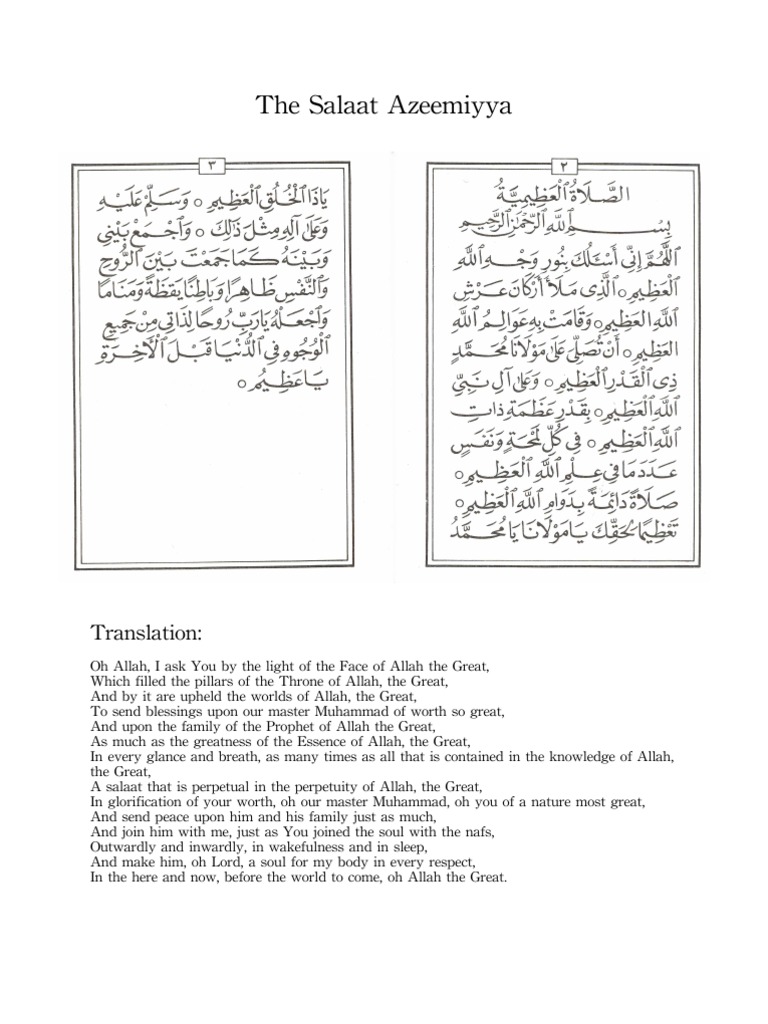 The Salaat Azeemiyya
٢
الصَّلَاةُ الْعَظِيمِيَّةُ
بِسْمِ اللَّهِ الرَّحْمَٰنِ الرَّحِيمِ
اَللَّهُمَّ إِنِّي أَسْئَلُكَ بِنُورِ وَجْهِ اللَّهِ
الْعَظِيمِ ○ الَّذِي مَلَأَ أَرْكَانَ عَرْشِ
اللَّهِ الْعَظِيمِ ○ وَقَامَتْ بِهِ عَوَالِمُ اللَّهِ
الْعَظِيمِ ○ أَنْ تُصَلِّيَ عَلَى مَوْلَانَا مُحَمَّدٍ
ذِي الْقَدْرِ الْعَظِيمِ ○ وَعَلَى آلِ نَبِيِّ
اللَّهِ الْعَظِيمِ ○ بِقَدْرِ عَظَمَةِ ذَاتِ
اللَّهِ الْعَظِيمِ ○ فِي كُلِّ لَمْحَةٍ وَنَفَسٍ
عَدَدَ مَا فِي عِلْمِ اللَّهِ الْعَظِيمِ ○
صَلَاةً دَائِمَةً بِدَوَامِ اللَّهِ الْعَظِيمِ ○
تَعْظِيمًا لِحَقِّكَ يَا مَوْلَانَا يَا مُحَمَّدُ
٣
يَاذَا الْخُلُقِ الْعَظِيمِ ○ وَسَلِّمْ عَلَيْهِ
وَعَلَى آلِهِ مِثْلَ ذَالِكَ ○ وَاجْمَعْ بَيْنِي
وَبَيْنَهُ كَمَا جَمَعْتَ بَيْنَ الرُّوحِ
وَالنَّفْسِ ظَاهِرًا وَبَاطِنًا يَقَظَةً وَمَنَامًا
وَاجْعَلْهُ يَارَبِّ رُوحًا لِذَاتِي مِنْ جَمِيعِ
الْوُجُوهِ فِي الدُّنْيَا قَبْلَ الْآخِرَةِ
يَا عَظِيمُ ○
Translation:
Oh Allah, I ask You by the light of the Face of Allah the Great,
Which filled the pillars of the Throne of Allah, the Great,
And by it are upheld the worlds of Allah, the Great,
To send blessings upon our master Muhammad of worth so great,
And upon the family of the Prophet of Allah the Great,
As much as the greatness of the Essence of Allah, the Great,
In every glance and breath, as many times as all that is contained in the knowledge of Allah,
the Great,
A salaat that is perpetual in the perpetuity of Allah, the Great,
In glorification of your worth, oh our master Muhammad, oh you of a nature most great,
And send peace upon him and his family just as much,
And join him with me, just as You joined the soul with the nafs,
Outwardly and inwardly, in wakefulness and in sleep,
And make him, oh Lord, a soul for my body in every respect,
In the here and now, before the world to come, oh Allah the Great.